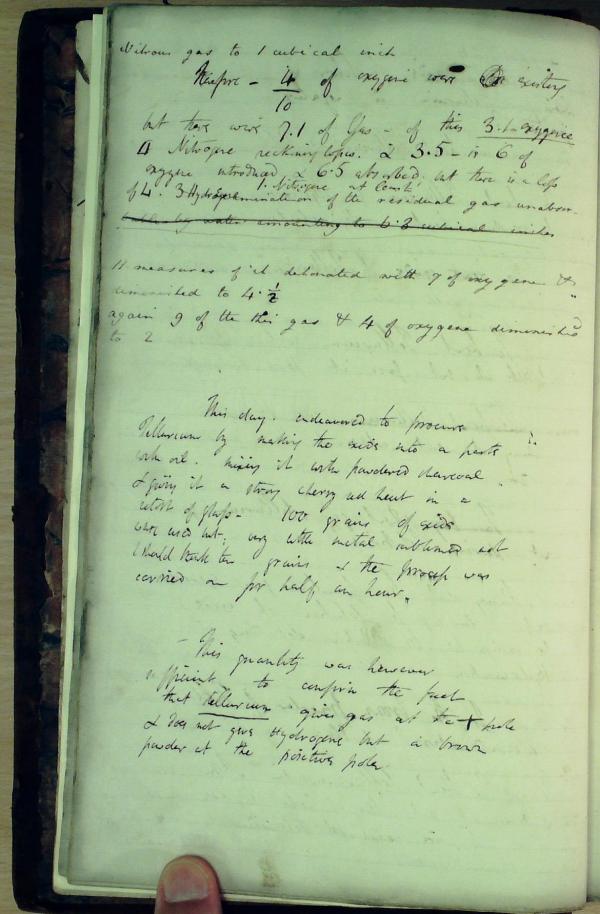 Nitrous gas to 1 cubical inch
Therefore - 4/10 of oxygene were existing
but there were 7.1 of Gas - of this 3.1 oxygene
4 Nitrogene reckoning losses. & 3.5 - is 6 of
oxygene introduced & 6.5 absorbed but there is a loss
of 4. 3 Hydro 1. Nitrogene at least
examination of the residual gas unabsor-
by water amounting to 6.3 cubical inches
11 measures of it detonated with 7 of oxygene &
diminished to 4. 1/2
again 9 of the this gas & 4 of oxygene diminished
to 2
This day. endeavored to procure
Tellurium by making the oxide into a paste
with oil. mixing it with powdered charcoal
& giving it a strong cherry red heat in a
retort of glass - 100 grains of oxide
were used but; very little metal sublimed not
I should think ten grains & the process was
carried on for half an hour.
- This quantity was however
sufficient to confirm the fact
that tellurium gives gas at the + pole
& does not give Hydrogene but a brown
powder at the positive pole